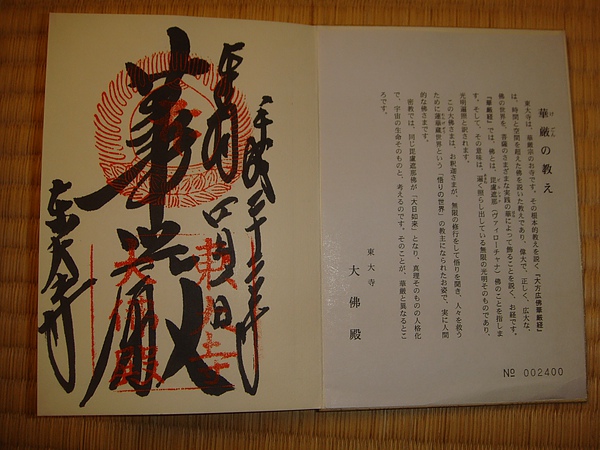 華厳の教え
けごん
東大寺は、華厳宗のお寺です。その根本的教えを説く『大方広佛華厳経』
は、時間と空間を超えた佛を説いた教えであり、偉大で、正しく、広大な、
佛の世界を、菩薩のさまざまな実践の華によって飾ることを説く、お経です。
『華厳経』では、佛とは、毘盧遮那（ヴァイローチャナ）佛のことを指しま
す。そして、その意味は、遍く照らし出している無限の光明そのものであり、
光明遍照と訳されます。
この大佛さまは、お釈迦さまが、無限の修行をして悟りを開き、人々を救う
ために蓮華蔵世界という、「悟りの世界」の教主になられたお姿で、実に人間
的な佛さまです。
密教では、同じ毘盧遮那佛が「大日如来」となり、真理そのものの人格化
で、宇宙の生命そのものと、考えるのです。そのことが、華厳と異なるとこ
ろです。
東大寺
大佛殿
№ 002400
奉拝
華厳
東大寺
大佛殿